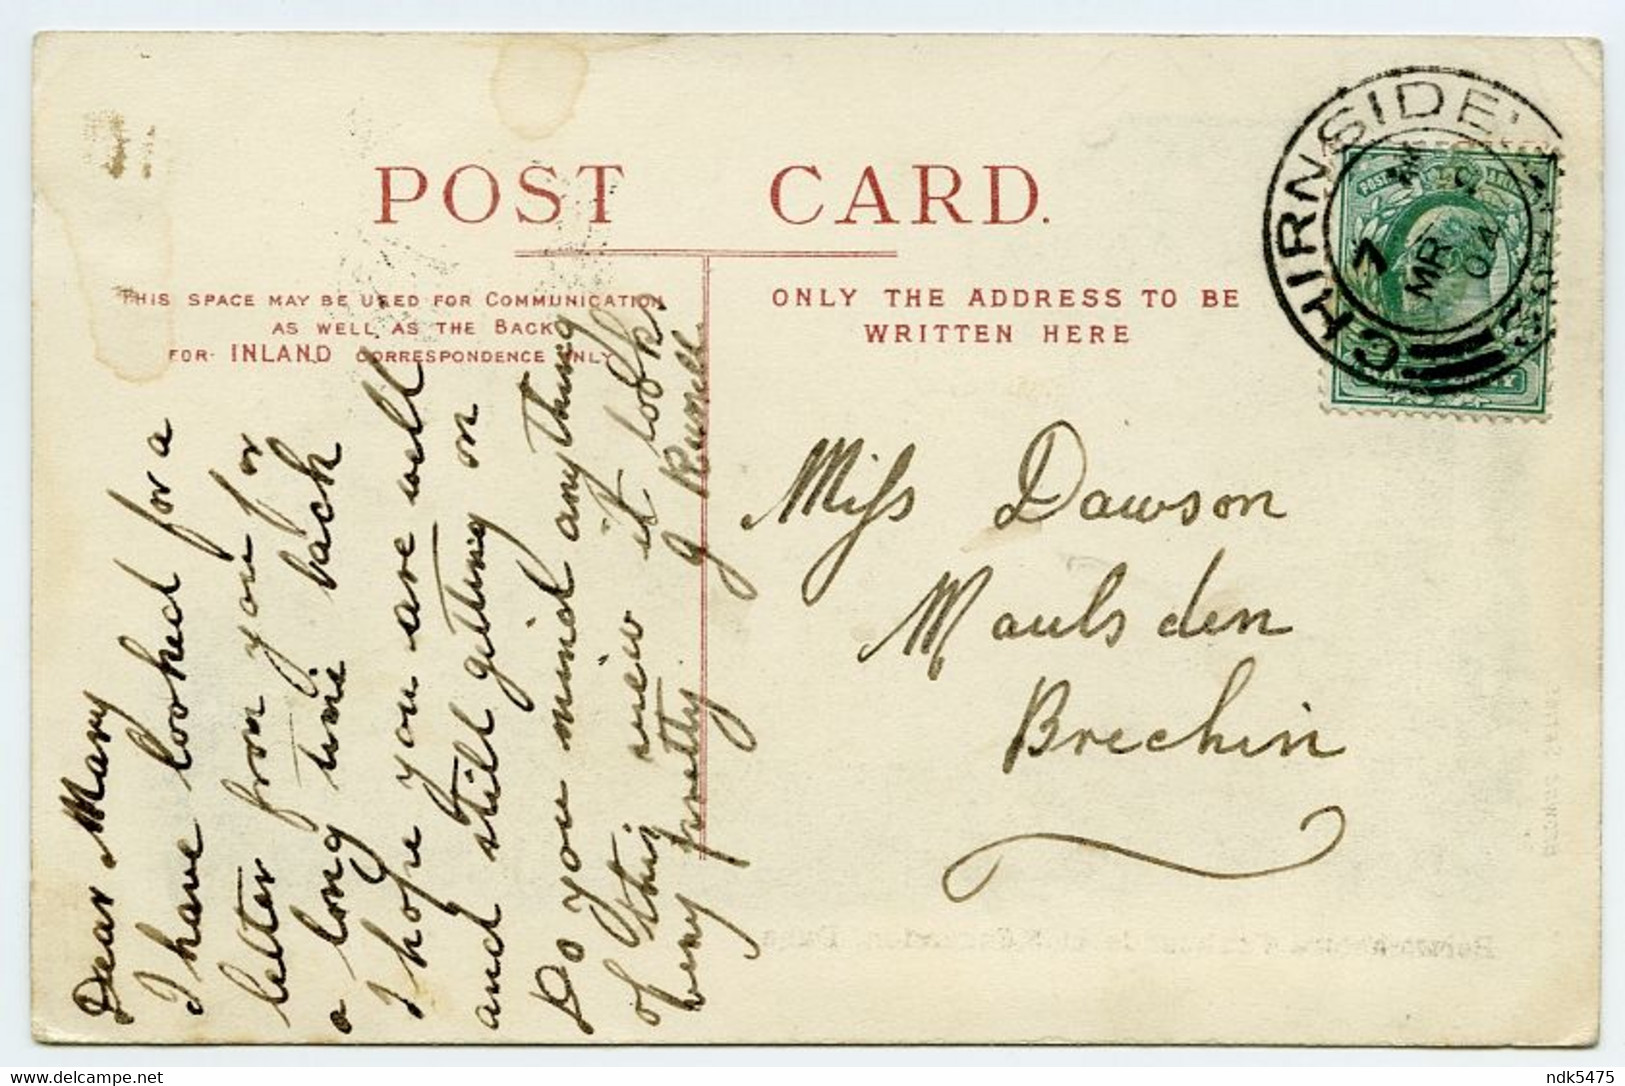 POST CARD.
THIS SPACE MAY BE USED FOR COMMUNICATION
AS WELL AS THE BACK
FOR INLAND CORRESPONDENCE ONLY
ONLY THE ADDRESS TO BE
WRITTEN HERE
CHIRNSIDE
7
MR
04
Dear Mary
I have looked for a
letter from you for
a long time back
I hope you are well
and still getting on
Do you mind anything
of this view it looks
very pretty. J
Miss Dawson
Maulsden
Brechin
delcampe.net
ndk5475